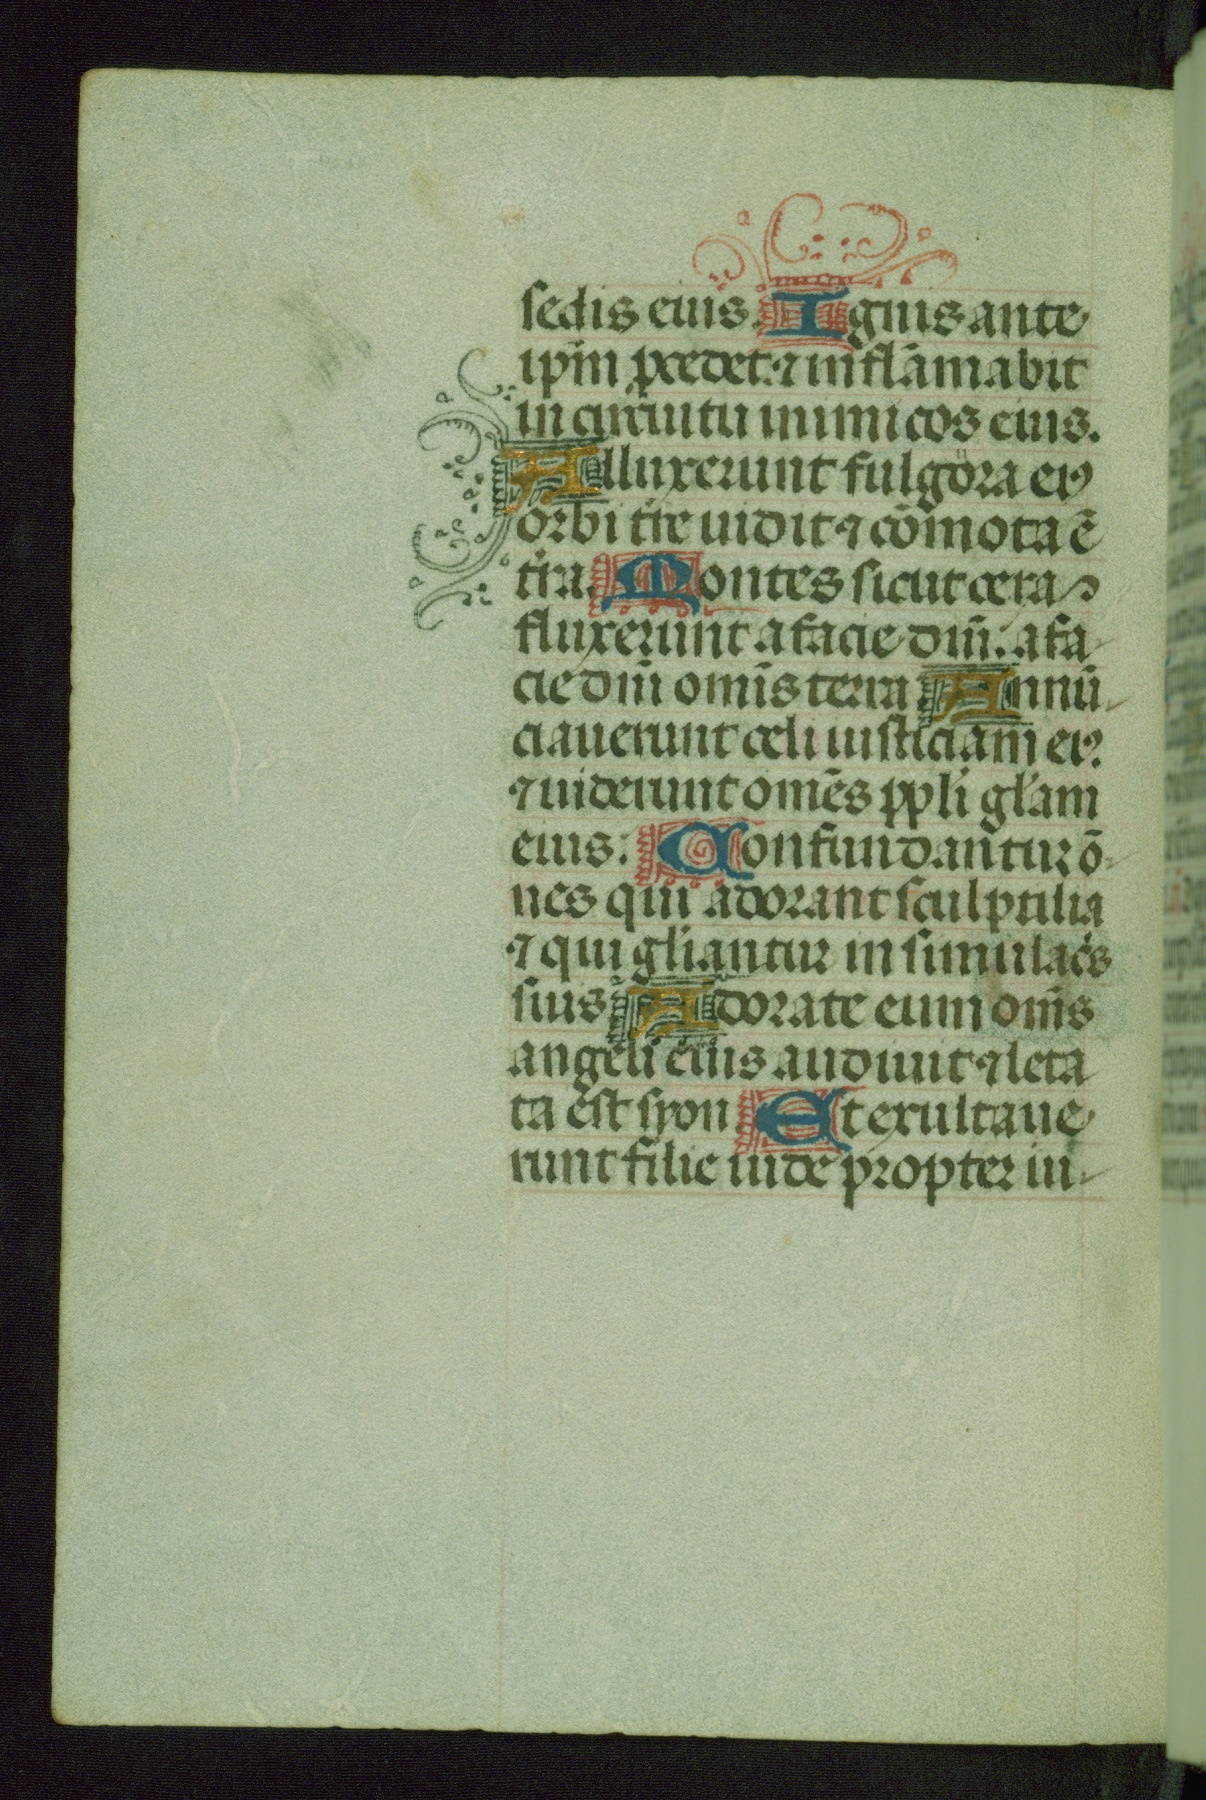 sedis eius. Ignis ante
ip̄m p̄cedet. ⁊ inflāmabit
in circuitu inimicos eius.
Alluxerunt fulgora eiꝰ
orbi tr̄e uidit ⁊ cōmota ē
tr̄a. Montes sicut cera
fluxerunt a facie dn̄i. a fa
cie dn̄i om̄is terra Annū
ciauerunt celi iusticiam eiꝰ.
⁊ uiderunt omēs ppl̄i gl̄am
eius: Confundantur ō
nes qui adorant sculptilia
⁊ qui gl̄iantur in simulac̄s
suis Adorate eum om̄s
angeli eius audiuit ⁊ leta
ta est syon. Et exultaue
runt filie iude propter iu